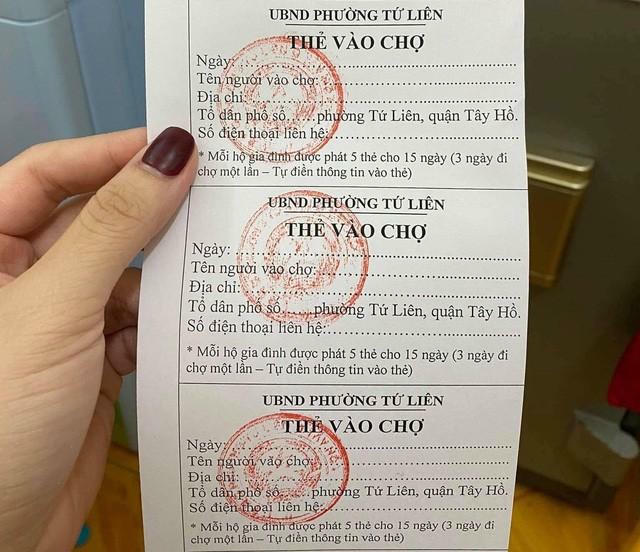 UBND PHƯỜNG TỨ LIÊN
THẺ VÀO CHỢ
Ngày:..........................................................
Tên người vào chợ:..........................................
Địa chỉ:........................................................
Tổ dân phố số......phường Tứ Liên, quận Tây Hồ.
Số điện thoại liên hệ:......................................
* Mỗi hộ gia đình được phát 5 thẻ cho 15 ngày (3 ngày đi
chợ một lần – Tự điền thông tin vào thẻ)
UBND PHƯỜNG TỨ LIÊN
THẺ VÀO CHỢ
Ngày:..........................................................
Tên người vào chợ:..........................................
Địa chỉ:........................................................
Tổ dân phố số......phường Tứ Liên, quận Tây Hồ.
Số điện thoại liên hệ:......................................
* Mỗi hộ gia đình được phát 5 thẻ cho 15 ngày (3 ngày đi
chợ một lần – Tự điền thông tin vào thẻ)
UBND PHƯỜNG TỨ LIÊN
THẺ VÀO CHỢ
Ngày:..........................................................
Tên người vào chợ:..........................................
Địa chỉ:........................................................
Tổ dân phố số......phường Tứ Liên, quận Tây Hồ.
Số điện thoại liên hệ:......................................
* Mỗi hộ gia đình được phát 5 thẻ cho 15 ngày (3 ngày đi
chợ một lần – Tự điền thông tin vào thẻ)